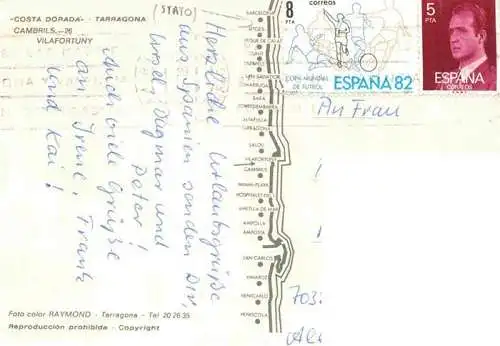 -COSTA DORADA- - TARRAGONA
CAMBRILS, - 26
VILAFORTUNY
(STATO)
Herzliche Urlaubsgrüße
aus Spanien senden Dir,
Dagmar und
Peter!
Auch viele Grüße
an Irene, Frank
und Kai!
Foto color RAYMOND - Tarragona - Tel 20 76 35
Reproducción prohibida - Copyright
BARCELONA
SITGES
CUNIT
BARA
TORREDEMBARRA
ALTAFULLA
TARRAGONA
SALOU
VILAFORTUNY
CAMBRILS
MIAMI-PLAYA
AMETLLA DE MAR
AMPOLLA
AMPOSTA
SAN CARLOS
VINAROZ
BENICARLO
PEÑISCOLA
8
PTA
correos
COPA MUNDIAL
DE FUTBOL
ESPAÑA 82
5
PTA
ESPAÑA
CORREOS
An Frau
703